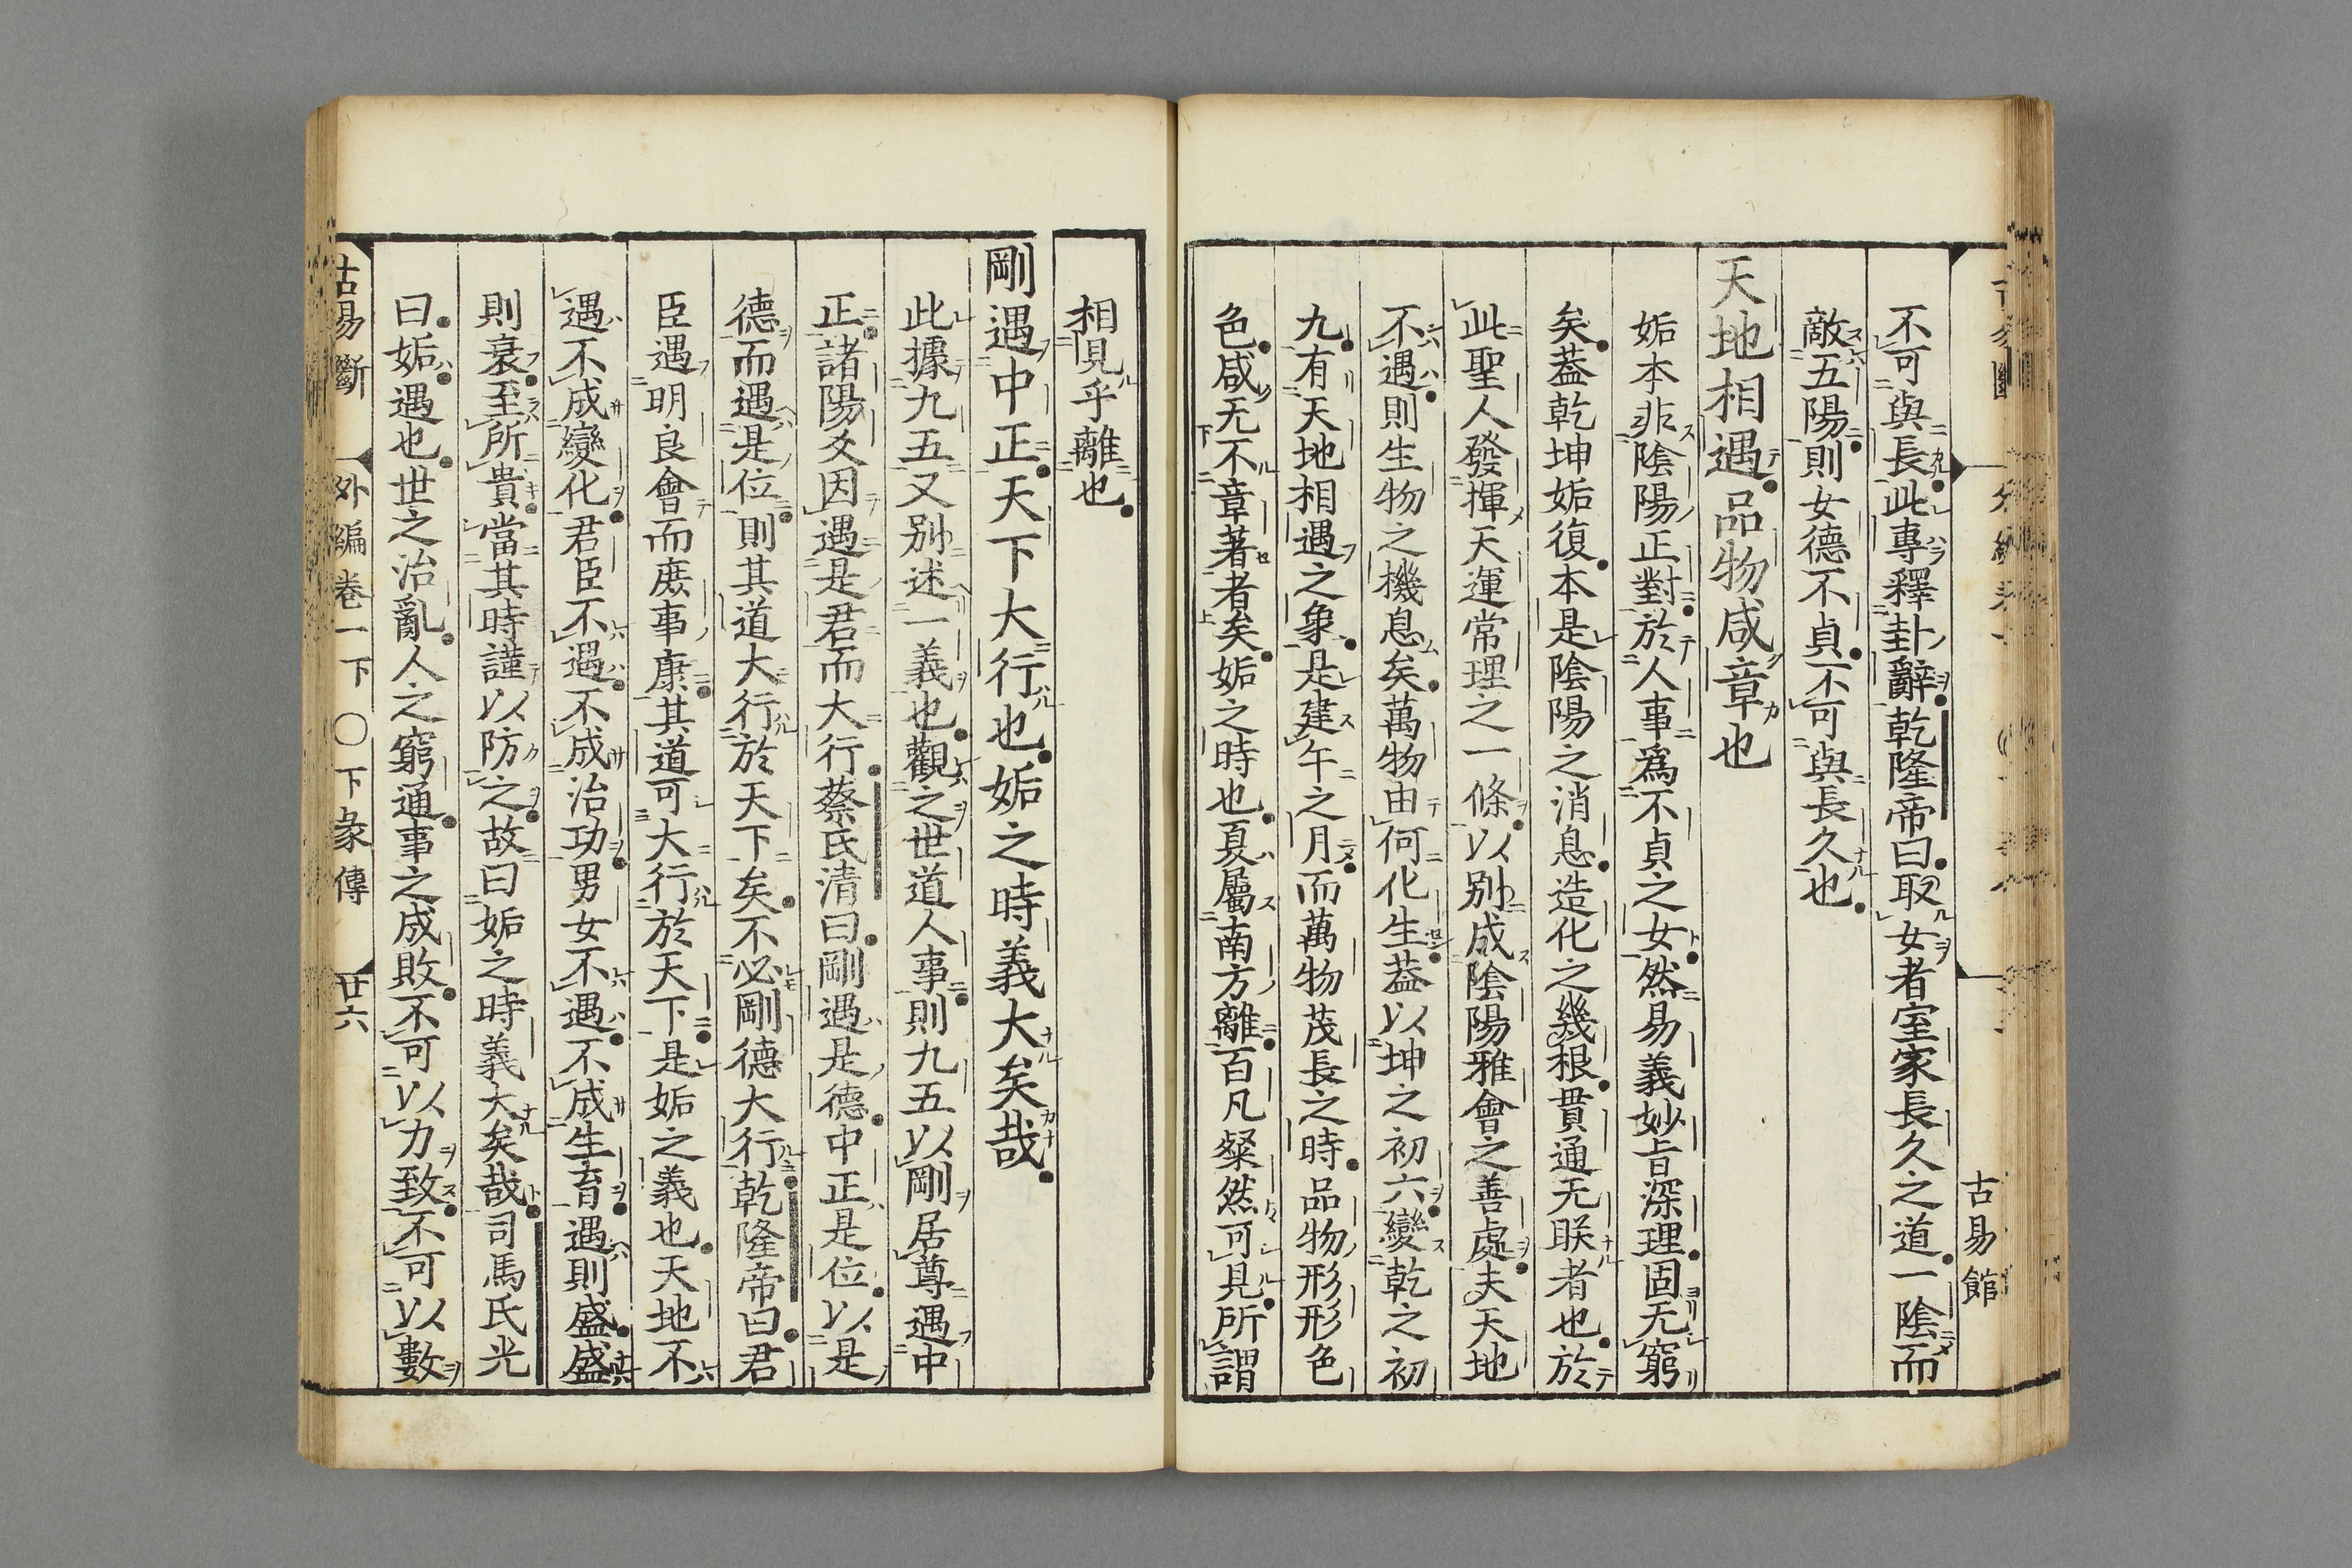 不可與長此專釋卦辭乾隆帝曰取女者室家長久之道一陰而
敵五陽則女德不貞不可與長久也
天地相遇品物咸章也
姤本非陰陽正對於人事爲不貞之女然易義妙旨深理固无窮
矣蓋乾坤姤復本是陰陽之消息造化之幾根貫通无朕者也於
此聖人發揮天運常理之一條以別成陰陽雅會之善處夫天地
不遇則生物之機息矣萬物由何化生蓋以坤之初六變乾之初
九有天地相遇之象是建午之月而萬物茂長之時品物形形色
色咸无不章著者矣姤之時也夏屬南方離百凡粲然可見所謂
古易館
相見乎離也
剛遇中正天下大行也姤之時義大矣哉
此據九五又別述一義也觀之世道人事則九五以剛居尊遇中
正諸陽爻因遇是君而大行蔡氏清曰剛遇是德中正是位以是
德而遇是位則其道大行於天下矣不必剛德大行乾隆帝曰君
臣遇明良會而庶事康其道可大行於天下是姤之義也天地不
遇不成變化君臣不遇不成治功男女不遇不成生育遇則盛盛
則衰至所貴當其時謹以防之故曰姤之時義大矣哉司馬氏光
曰姤遇也世之治亂人之窮通事之成敗不可以力致不可以數
古易斷 外編卷一下 〇下彖傳 廿六